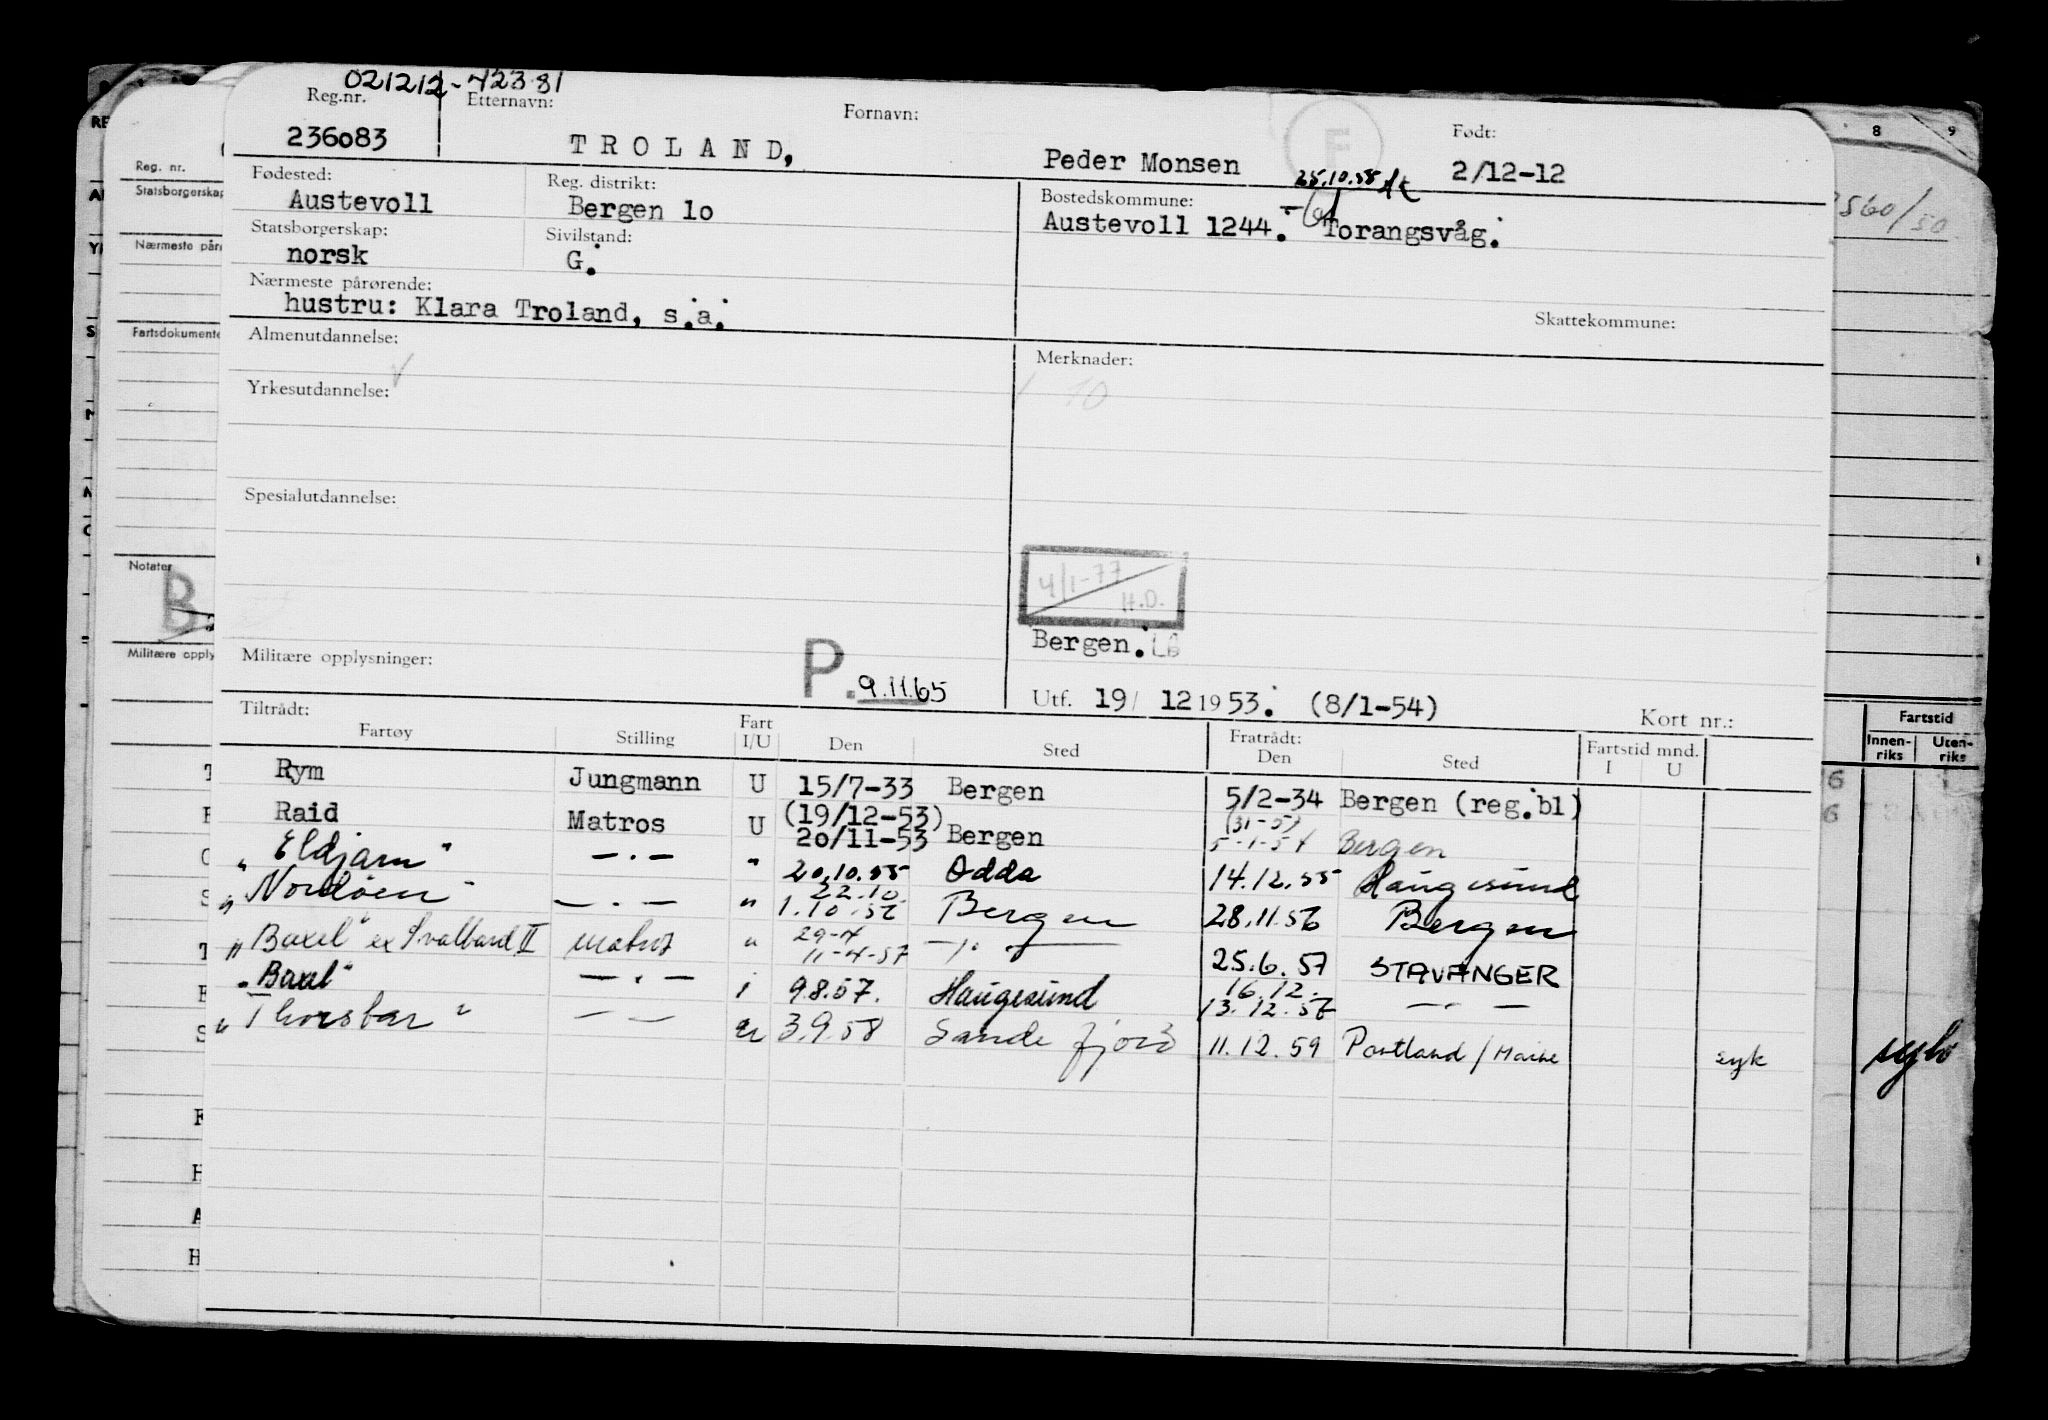 021212-42381
Reg.nr. Etternavn: Fornavn: Født:
236083 TROLAND, Peder Monsen 2/12-12
F
25.10.58
Fødested: Reg. distrikt: Bostedskommune:
Austevoll Bergen lo Austevoll 1244. Torangsvåg.
Statsborgerskap: Sivilstand:
norsk G.
Nærmeste pårørende:
hustru: Klara Troland, s.a.
Skattekommune:
Almenutdannelse: Merknader:
Yrkesutdannelse:
Spesialutdannelse:
4/1-77
H.D.
Bergen.
Militære opplysninger: P. 9.11.65
Utf. 19/ 12 1953. (8/1-54)
Kort nr.:
Tiltrådt: Fratrådt: Fartstid mnd.
Fartøy Stilling Fart I/U Den Sted Den Sted I U
Rym Jungmann U 15/7-33 Bergen 5/2-34 Bergen (reg.bl)
Raid Matros U (19/12-53) 20/11-53 Bergen Bergen
"Eldjarn" —.— " 20.10.55 Odda 14.12.55 Haugesund
"Nordøen" —.— " 22.10. 1.10.56 Bergen 28.11.56 Bergen
"Baxel" ex Svalbard II matros " 29-4 11-4-57 —"— 25.6.57 STAVANGER
"Baxel" —.— i 9.8.57. Haugesund 16.12. 13.12.56 —"—
"Thorsbar" — — u 3.9.58 Sandefjord 11.12.59 Portland / Maine syk
Reg. nr.
Statsborgerskap
Nærmeste pår
Fartsdokumente
Notater
B
Militære opply
8 9
560/50
Fartstid
Innen-riks Uten-riks